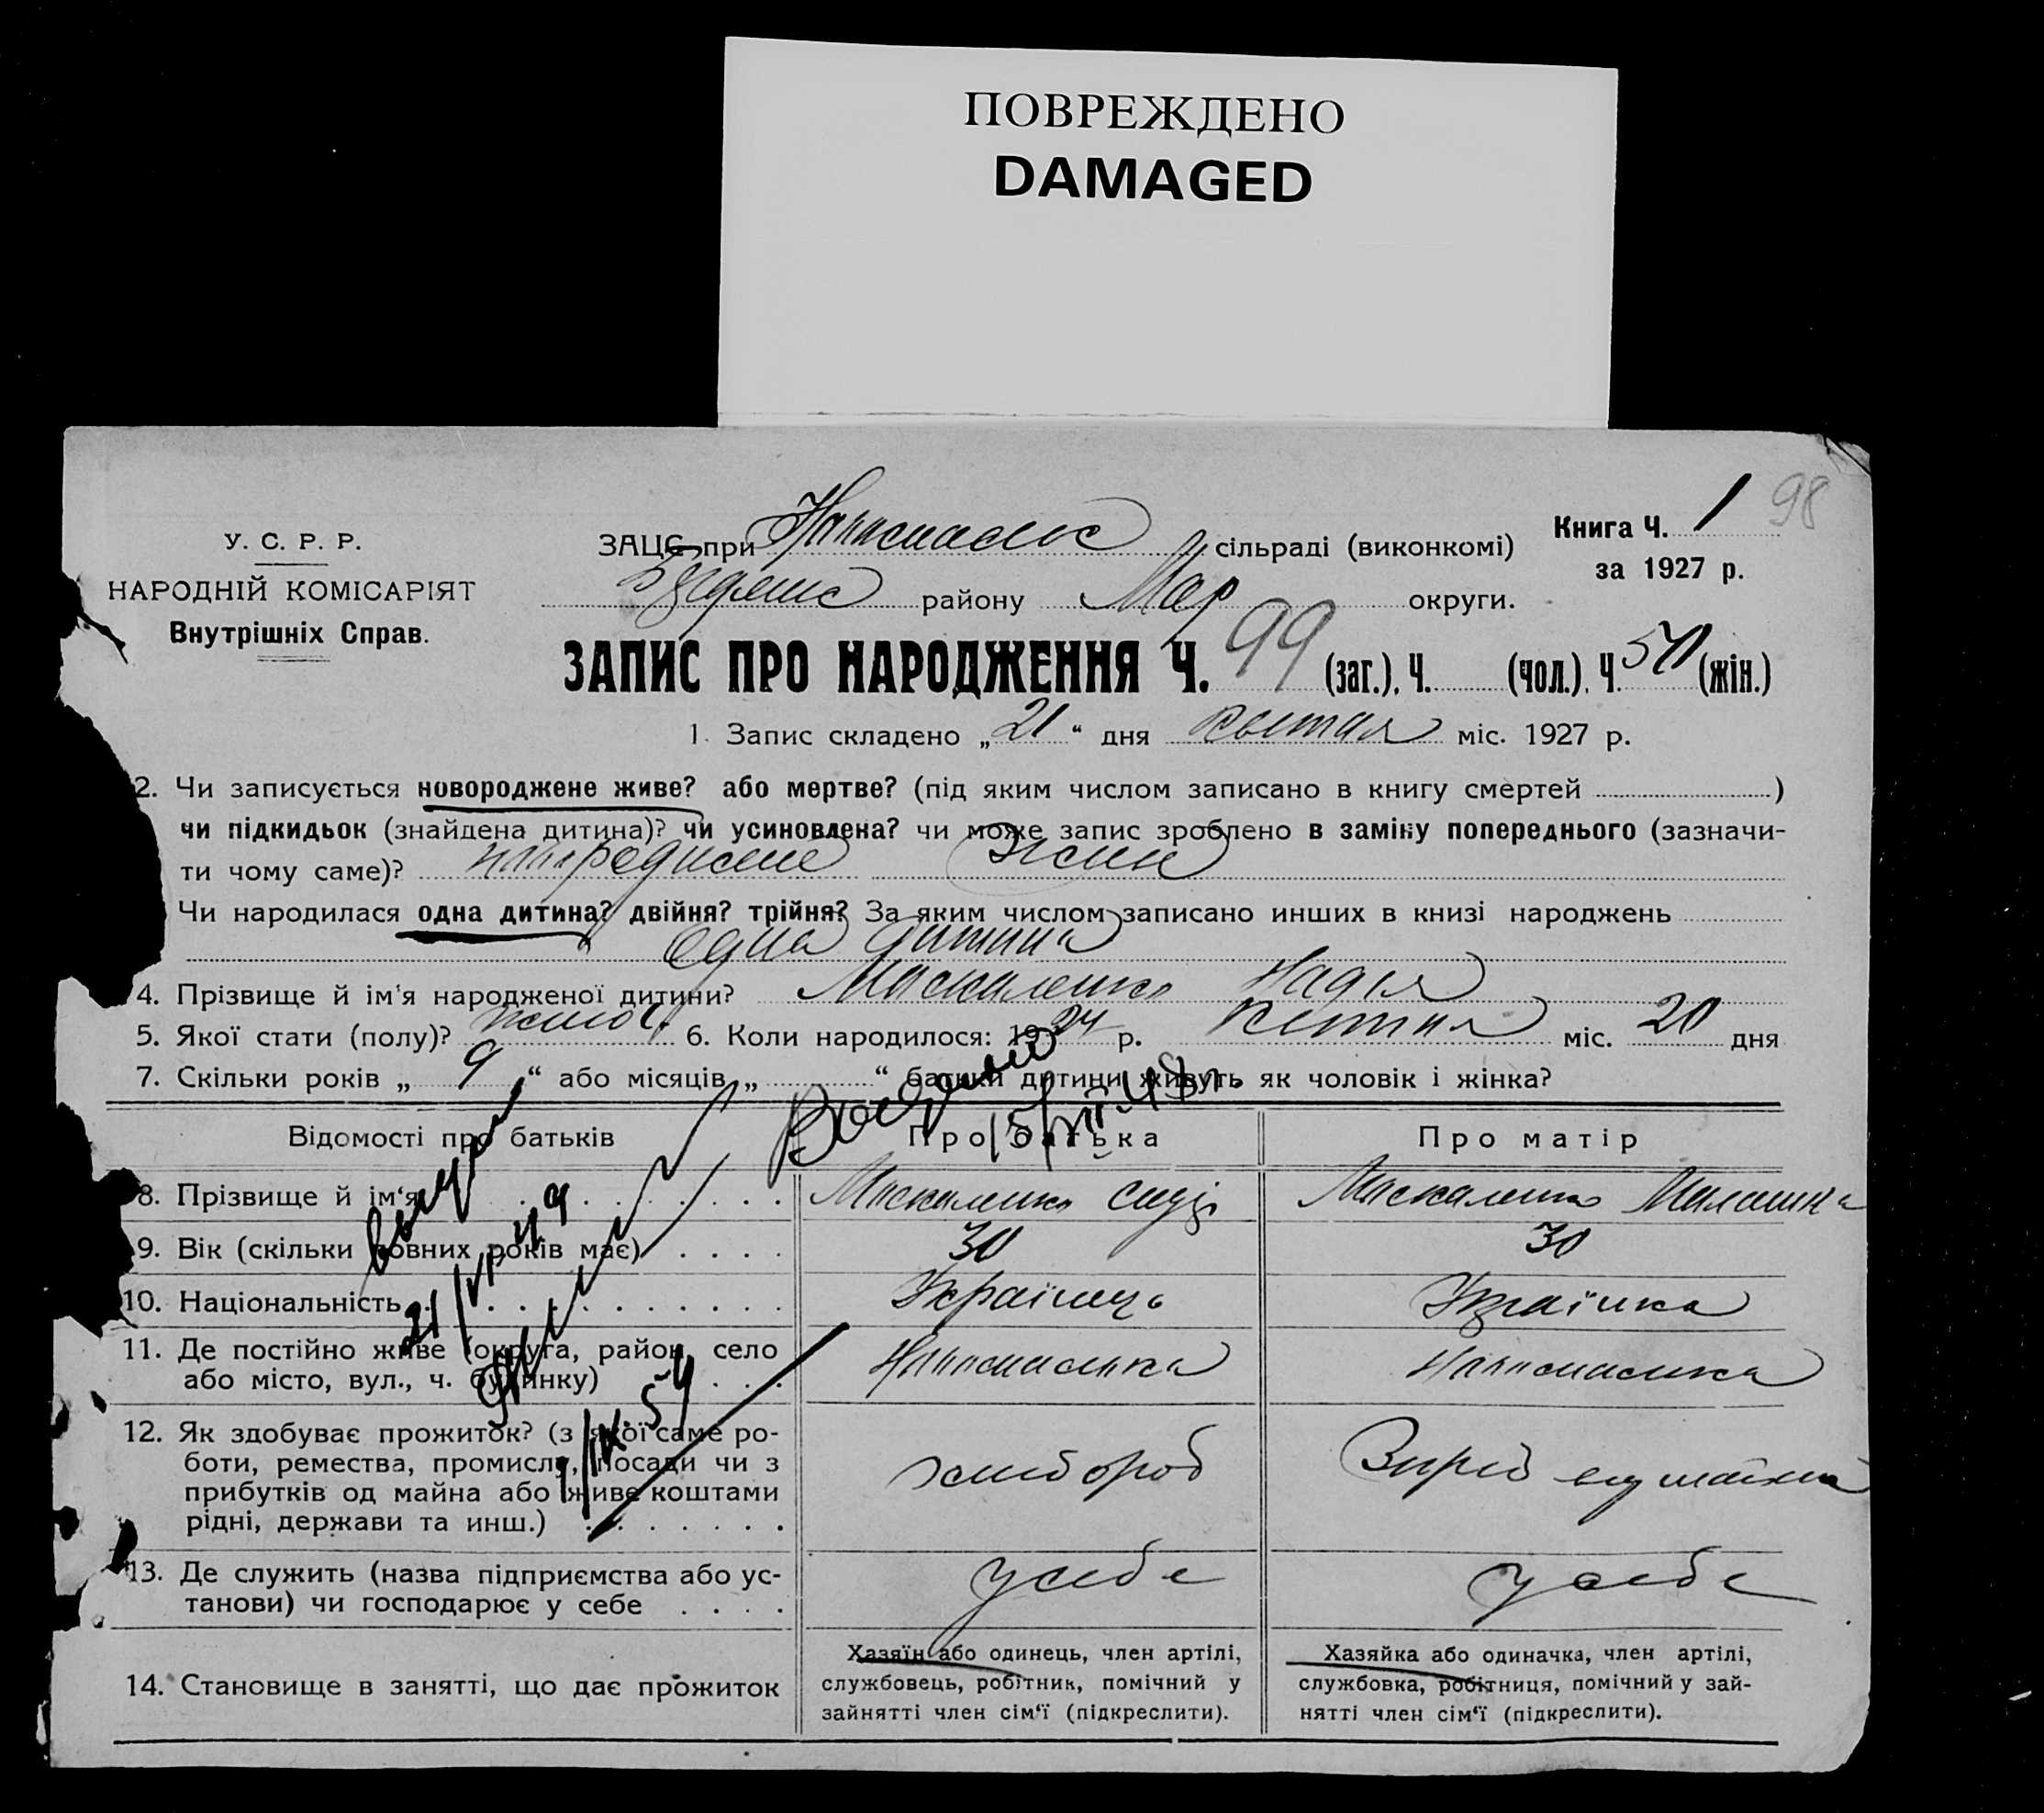 ПОВРЕЖДЕНО
DAMAGED
98
Книга Ч. 1
за 1927 р.
У. С. Р. Р.
НАРОДНІЙ КОМІСАРІЯТ
Внутрішніх Справ.
ЗАЦС при сільраді (виконкомі)
району Мар округи.
ЗАПИС ПРО НАРОДЖЕННЯ Ч. 99 (заг.), Ч. (чол.), Ч. 50 (жін.)
1. Запис складено „21“ дня квітня міс. 1927 р.
2. Чи записується новороджене живе? або мертве? (під яким числом записано в книгу смертей )
чи підкидьок (знайдена дитина)? чи усиновлена? чи може запис зроблено в заміну попереднього (зазначи-
ти чому саме)?
Чи народилася одна дитина? двійня? трійня? За яким числом записано инших в книзі народжень
одна дитина
4. Прізвище й ім'я народженої дитини? Маскаленко Надія
5. Якої стати (полу)? жіноч. 6. Коли народилося: 1927 р. квітня міс. 20 дня
7. Скільки років „9“ або місяців „ “ батьки дитини живуть як чоловік і жінка?
Відомості про батьків Про батька Про матір
8. Прізвище й ім'я Маскаленко Маскаленко
9. Вік (скільки повних років має) 30 30
10. Національність Українець Українка
11. Де постійно живе (округа, район, село
або місто, вул., ч. будинку)
12. Як здобуває прожиток? (з якої саме ро-
боти, ремества, промислу, посади чи з
прибутків од майна або живе коштами
рідні, держави та инш.) хлібороб
13. Де служить (назва підприємства або ус-
танови) чи господарює у себе у себе у себе
14. Становище в занятті, що дає прожиток
Хазяїн або одинець, член артілі,
службовець, робітник, помічний у
зайнятті член сім'ї (підкреслити).
Хазяйка або одиначка, член артілі,
службовка, робітниця, помічний у зай-
нятті член сім'ї (підкреслити).